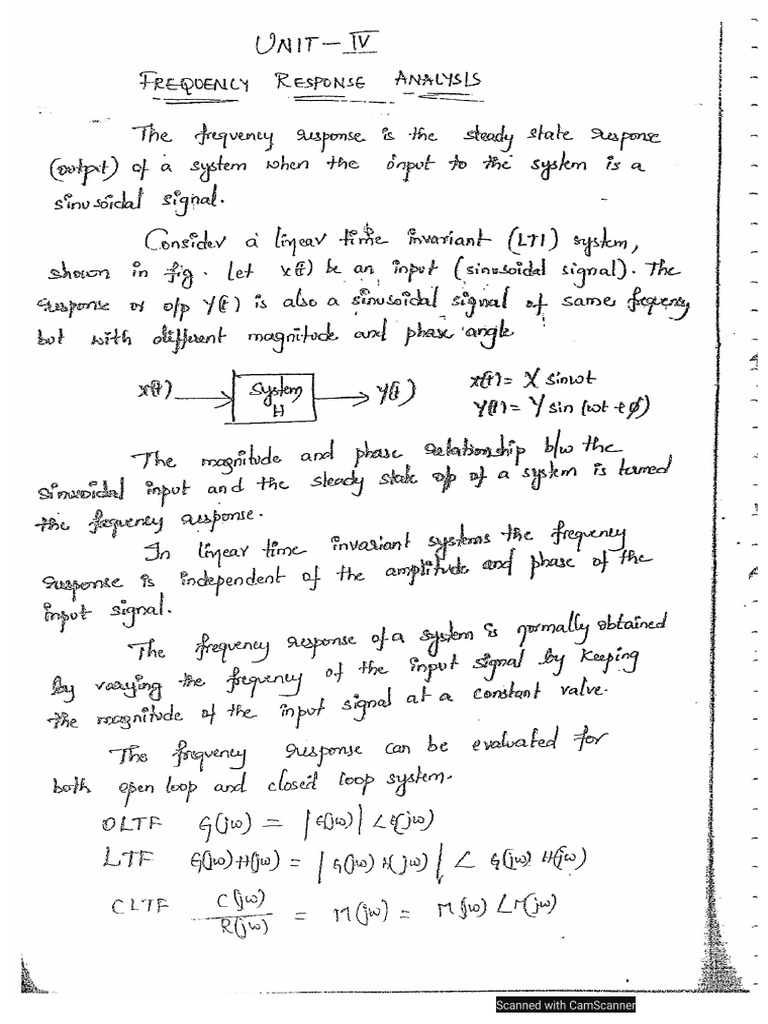 UNIT - IV
FREQUENCY RESPONSE ANALYSIS
The frequency response is the steady state response
(output) of a system when the input to the system is a
sinusoidal signal.
Consider a linear time invariant (LTI) system,
shown in fig. Let x(t) be an input (sinusoidal signal). The
response or o/p y(t) is also a sinusoidal signal of same frequency
but with different magnitude and phase angle
x(t) → System H → y(t)
x(t) = X sinωt
y(t) = Y sin (ωt + ϕ)
The magnitude and phase relationship b/w the
sinusoidal input and the steady state o/p of a system is termed
the frequency response.
In linear time invariant systems the frequency
response is independent of the amplitude and phase of the
input signal.
The frequency response of a system is normally obtained
by varying the frequency of the input signal by keeping
the magnitude of the input signal at a constant valve.
The frequency response can be evaluated for
both open loop and closed loop system.
OLTF G(jω) = |G(jω)| ∠G(jω)
LTF G(jω)H(jω) = |G(jω) H(jω)| ∠ G(jω) H(jω)
CLTF C(jω)/R(jω) = M(jω) = M(jω) ∠M(jω)
Scanned with CamScanner